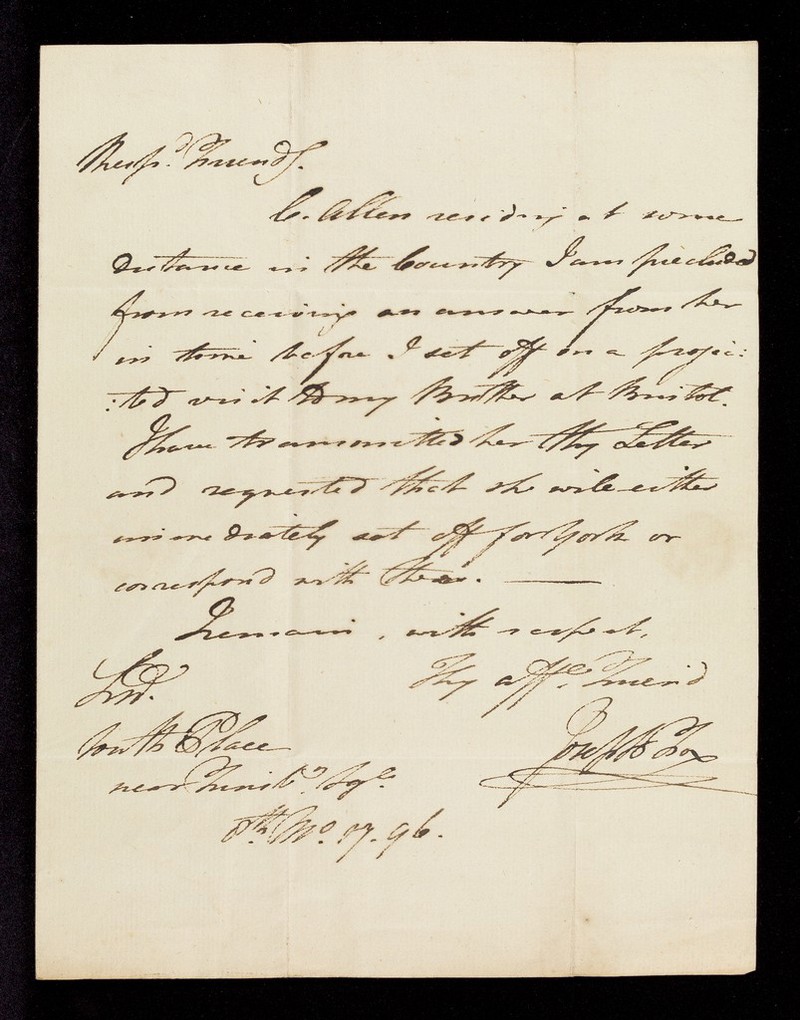 Resp.d Friend/.
C. Allen residing at some
distance in the Country I am precluded
from receiving an answer from her
in time before I set off on a projec:
:ted visit to my Brother at Bristol.
I have transmitted her thy Letter
and requested that she will either
immediately set off for York or
correspond with thee. ———
I remain, with respect,
Thy aff.e Friend
Lond.
South Place
Joseph Fox
near Finsb.y Sq.e
8th Mo. 17. 96.